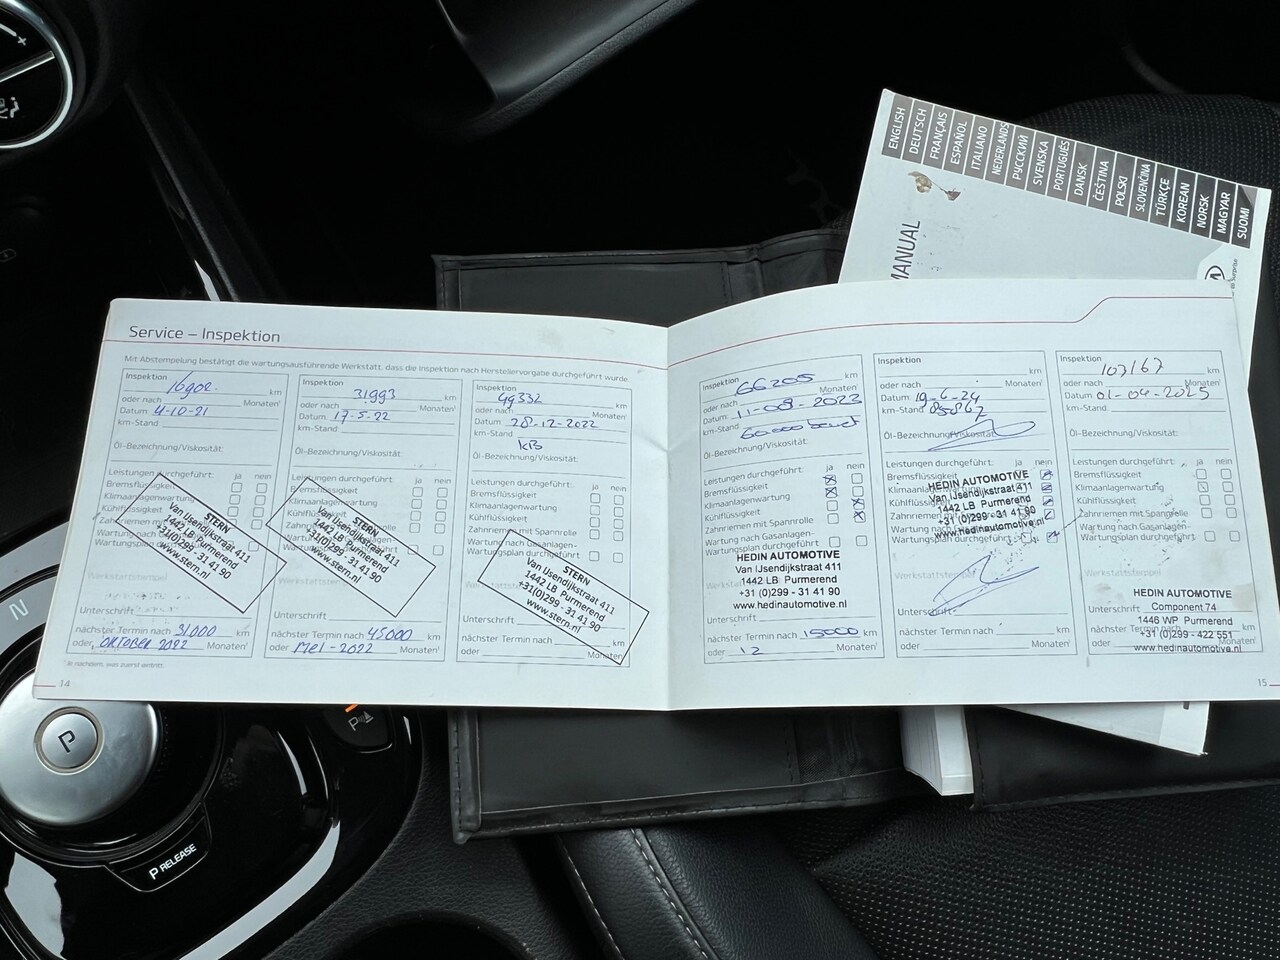 ENGLISH
DEUTSCH
FRANÇAIS
ESPAÑOL
ITALIANO
NEDERLANDS
РУССКИЙ
SVENSKA
PORTUGUÊS
DANSK
ČEŠTINA
POLSKI
SLOVENČINA
TÜRKÇE
KOREAN
NORSK
MAGYAR
SUOMI
MANUAL
Service – Inspektion
Mit Abstempelung bestätigt die wartungsausführende Werkstatt, dass die Inspektion nach Herstellervorgabe durchgeführt wurde.
Inspektion 16902 km
oder nach Monaten¹
Datum 4-10-21
km-Stand
Öl-Bezeichnung/Viskosität:
Leistungen durchgeführt: ja nein
Bremsflüssigkeit
Klimaanlagenwartung
Kühlflüssigkeit
Zahnriemen
Wartung nach
Wartungsplan
STERN
Van IJsendijkstraat 411
1442 LB Purmerend
+31(0)299 - 31 41 90
www.stern.nl
Werkstattstempel
Unterschrift
nächster Termin nach 31000 km
oder OKTOBER 2022 Monaten¹
Inspektion 31993 km
oder nach Monaten¹
Datum 17-5-22
km-Stand
Öl-Bezeichnung/Viskosität:
Leistungen durchgeführt: ja nein
Bremsflüssigkeit
Klimaanlagenwartung
Kühlflüssigkeit
Zahnriemen mit Spannrolle
STERN
Van IJsendijkstraat 411
1442 LB Purmerend
+31(0)299 - 31 41 90
www.stern.nl
Unterschrift
nächster Termin nach 45000 km
oder MEI-2022 Monaten¹
Inspektion 49332 km
oder nach Monaten¹
Datum 28-12-2022
km-Stand
Öl-Bezeichnung/Viskosität:
Leistungen durchgeführt: ja nein
Bremsflüssigkeit
Klimaanlagenwartung
Kühlflüssigkeit
Zahnriemen mit Spannrolle
Wartung nach Gasanlagen-
Wartungsplan durchgeführt
STERN
Van IJsendijkstraat 411
1442 LB Purmerend
+31(0)299 - 31 41 90
www.stern.nl
Unterschrift
nächster Termin nach km
oder Monaten¹
¹ Je nachdem, was zuerst eintritt.
14
Inspektion 66205 km
oder nach Monaten¹
Datum 11-08-2023
km-Stand 60000 beurt
Öl-Bezeichnung/Viskosität:
Leistungen durchgeführt: ja nein
Bremsflüssigkeit
Klimaanlagenwartung
Kühlflüssigkeit
Zahnriemen mit Spannrolle
Wartung nach Gasanlagen-
Wartungsplan durchgeführt
HEDIN AUTOMOTIVE
Van IJsendijkstraat 411
1442 LB Purmerend
+31 (0)299 - 31 41 90
www.hedinautomotive.nl
Unterschrift
nächster Termin nach 15000 km
oder 12 Monaten¹
Inspektion km
oder nach Monaten¹
Datum 19-6-24
km-Stand 85867
Öl-Bezeichnung/Viskosität:
Leistungen durchgeführt: ja nein
Bremsflüssigkeit
Klimaanlagenwartung
Kühlflüssigkeit
Zahnriemen
Wartung nach
Wartungsplan durchgeführt
HEDIN AUTOMOTIVE
Van IJsendijkstraat 411
1442 LB Purmerend
+31 (0)299 - 31 41 90
www.hedinautomotive.nl
Werkstattstempel
Unterschrift
nächster Termin nach km
oder Monaten¹
Inspektion 103167 km
oder nach Monaten¹
Datum 01-04-2025
km-Stand
Öl-Bezeichnung/Viskosität:
Leistungen durchgeführt: ja nein
Bremsflüssigkeit
Klimaanlagenwartung
Kühlflüssigkeit
Zahnriemen mit Spannrolle
Wartung nach Gasanlagen-
Wartungsplan durchgeführt
Werkstattstempel
HEDIN AUTOMOTIVE
Component 74
1446 WP Purmerend
+31 (0)299 - 422 551
www.hedinautomotive.nl
Unterschrift
nächster Termin nach km
oder Monaten¹
15
N
P
P RELEASE
P